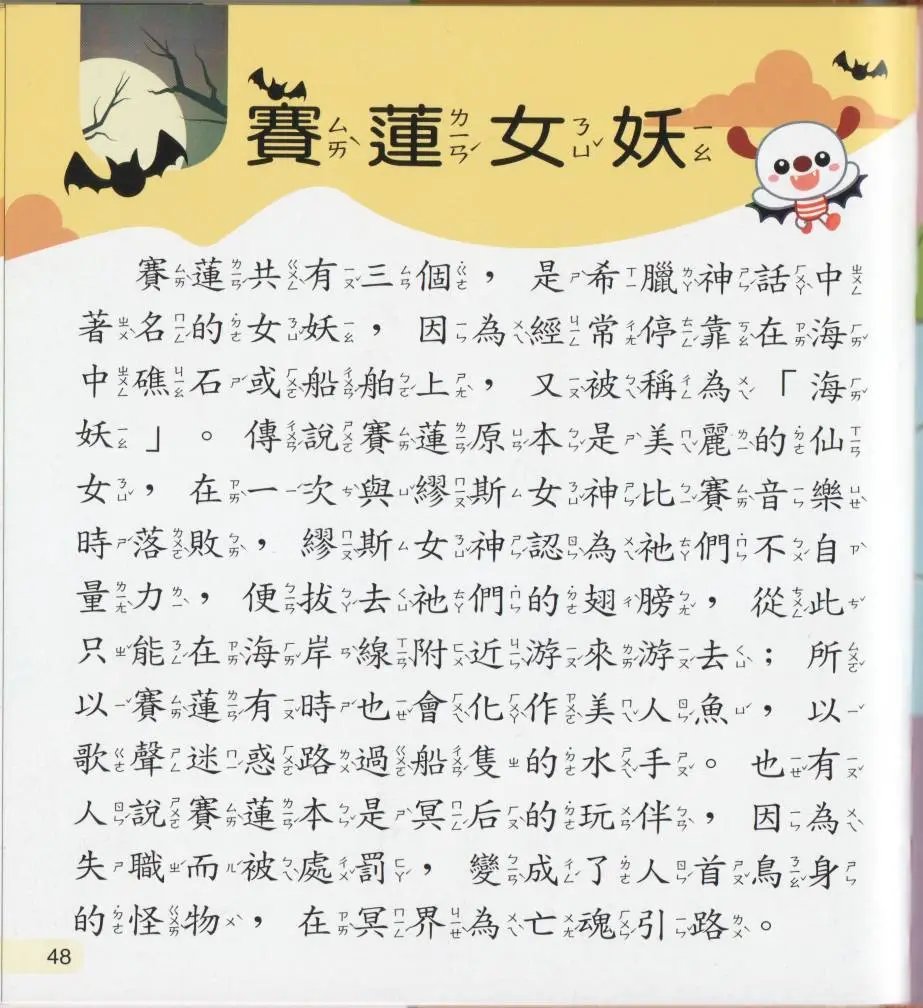 賽蓮女妖
賽蓮共有三個，是希臘神話中
著名的女妖，因為經常停靠在海
中礁石或船舶上，又被稱為「海
妖」。傳說賽蓮原本是美麗的仙
女，在一次與繆斯女神比賽音樂
時落敗，繆斯女神認為祂們不自
量力，便拔去祂們的翅膀，從此
只能在海岸線附近游來游去；所
以賽蓮有時也會化作美人魚，以
歌聲迷惑路過船隻的水手。也有
人說賽蓮本是冥后的玩伴，因為
失職而被處罰，變成了人首鳥身
的怪物，在冥界為亡魂引路。
48